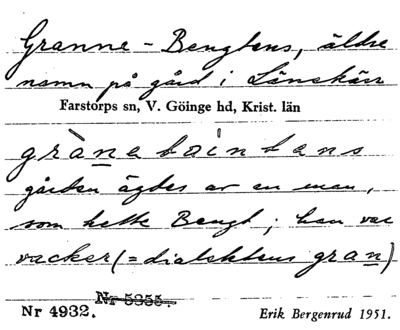 Granne-Bengtens, äldre
namn på gård i Lönskärr
Farstorps sn, V. Göinge hd, Krist. län
gràna bai̇ntans
gården ägdes av en man,
som hette Bengt; han var
vacker (= dialektens gran)
Nr 5355.
Nr 4932.
Erik Bergenrud 1951.